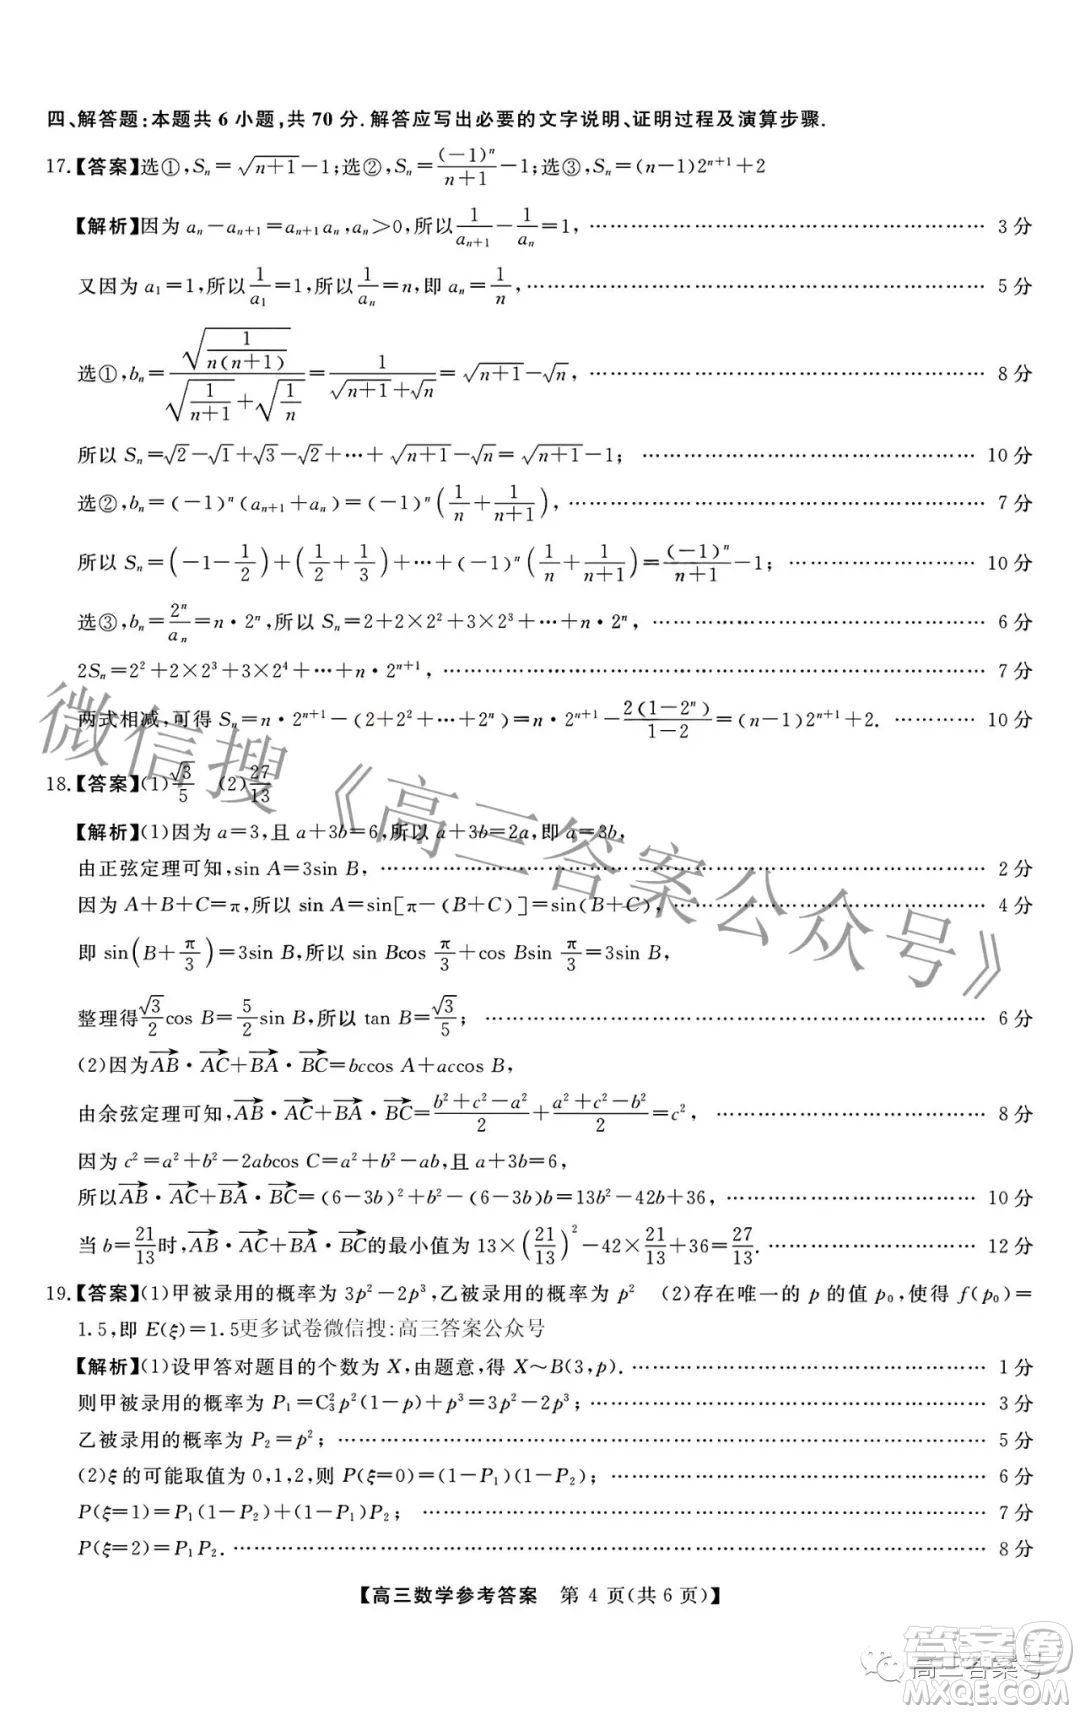 四、解答题:本题共 6 小题,共 70 分.解答应写出必要的文字说明、证明过程及演算步骤.
17.【答案】选①,Sₙ=√(n+1)-1;选②,Sₙ=(-1)ⁿ/(n+1)-1;选③,Sₙ=(n-1)2ⁿ⁺¹+2
【解析】因为 aₙ-aₙ₊₁=aₙ₊₁aₙ,aₙ>0,所以 1/aₙ₊₁-1/aₙ=1, …… 3 分
又因为 a₁=1,所以 1/a₁=1,所以 1/aₙ=n,即 aₙ=1/n, …… 5 分
选①,bₙ=√(1/(n(n+1)))/(√(1/(n+1))+√(1/n))=1/(√(n+1)+√n)=√(n+1)-√n, …… 8 分
所以 Sₙ=√2-√1+√3-√2+…+√(n+1)-√n=√(n+1)-1; …… 10 分
选②,bₙ=(-1)ⁿ(aₙ₊₁+aₙ)=(-1)ⁿ(1/n+1/(n+1)), …… 7 分
所以 Sₙ=(-1-1/2)+(1/2+1/3)+…+(-1)ⁿ(1/n+1/(n+1))=(-1)ⁿ/(n+1)-1; …… 10 分
选③,bₙ=2ⁿ/aₙ=n·2ⁿ,所以 Sₙ=2+2×2²+3×2³+…+n·2ⁿ, …… 6 分
2Sₙ=2²+2×2³+3×2⁴+…+n·2ⁿ⁺¹, …… 7 分
两式相减,可得 Sₙ=n·2ⁿ⁺¹-(2+2²+…+2ⁿ)=n·2ⁿ⁺¹-2(1-2ⁿ)/(1-2)=(n-1)2ⁿ⁺¹+2. …… 10 分
18.【答案】(1)√3/5 (2)27/13
【解析】(1)因为 a=3,且 a+3b=6,所以 a+3b=2a,即 a=3b,
由正弦定理可知,sin A=3sin B, …… 2 分
因为 A+B+C=π,所以 sin A=sin[π-(B+C)]=sin(B+C), …… 4 分
即 sin(B+π/3)=3sin B,所以 sin Bcos π/3+cos Bsin π/3=3sin B,
整理得 √3/2 cos B=5/2 sin B,所以 tan B=√3/5; …… 6 分
(2)因为 AB→·AC→+BA→·BC→=bccos A+accos B,
由余弦定理可知,AB→·AC→+BA→·BC→=(b²+c²-a²)/2+(a²+c²-b²)/2=c², …… 8 分
因为 c²=a²+b²-2abcos C=a²+b²-ab,且 a+3b=6,
所以 AB→·AC→+BA→·BC→=(6-3b)²+b²-(6-3b)b=13b²-42b+36, …… 10 分
当 b=21/13 时,AB→·AC→+BA→·BC→的最小值为 13×(21/13)²-42×21/13+36=27/13. …… 12 分
19.【答案】(1)甲被录用的概率为 3p²-2p³,乙被录用的概率为 p² (2)存在唯一的 p 的值 p₀,使得 f(p₀)=
1.5,即 E(ξ)=1.5更多试卷微信搜:高三答案公众号
【解析】(1)设甲答对题目的个数为 X,由题意,得 X~B(3,p). …… 1 分
则甲被录用的概率为 P₁=C₃²p²(1-p)+p³=3p²-2p³; …… 3 分
乙被录用的概率为 P₂=p²; …… 5 分
(2)ξ 的可能取值为 0,1,2,则 P(ξ=0)=(1-P₁)(1-P₂); …… 6 分
P(ξ=1)=P₁(1-P₂)+(1-P₁)P₂; …… 7 分
P(ξ=2)=P₁P₂. …… 8 分
【高三数学参考答案 第 4 页(共 6 页)】
微信搜《高三答案公众号》
高三答案号
答案圈
MXQE.COM